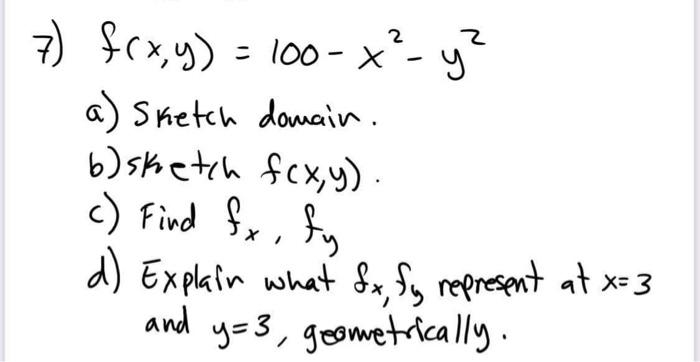 7) f(x,y) = 100 - x² - y²
a) Sketch domain.
b) sketch f(x,y).
c) Find fx, fy
d) Explain what fx, fy represent at x=3
and y=3, geometrically.